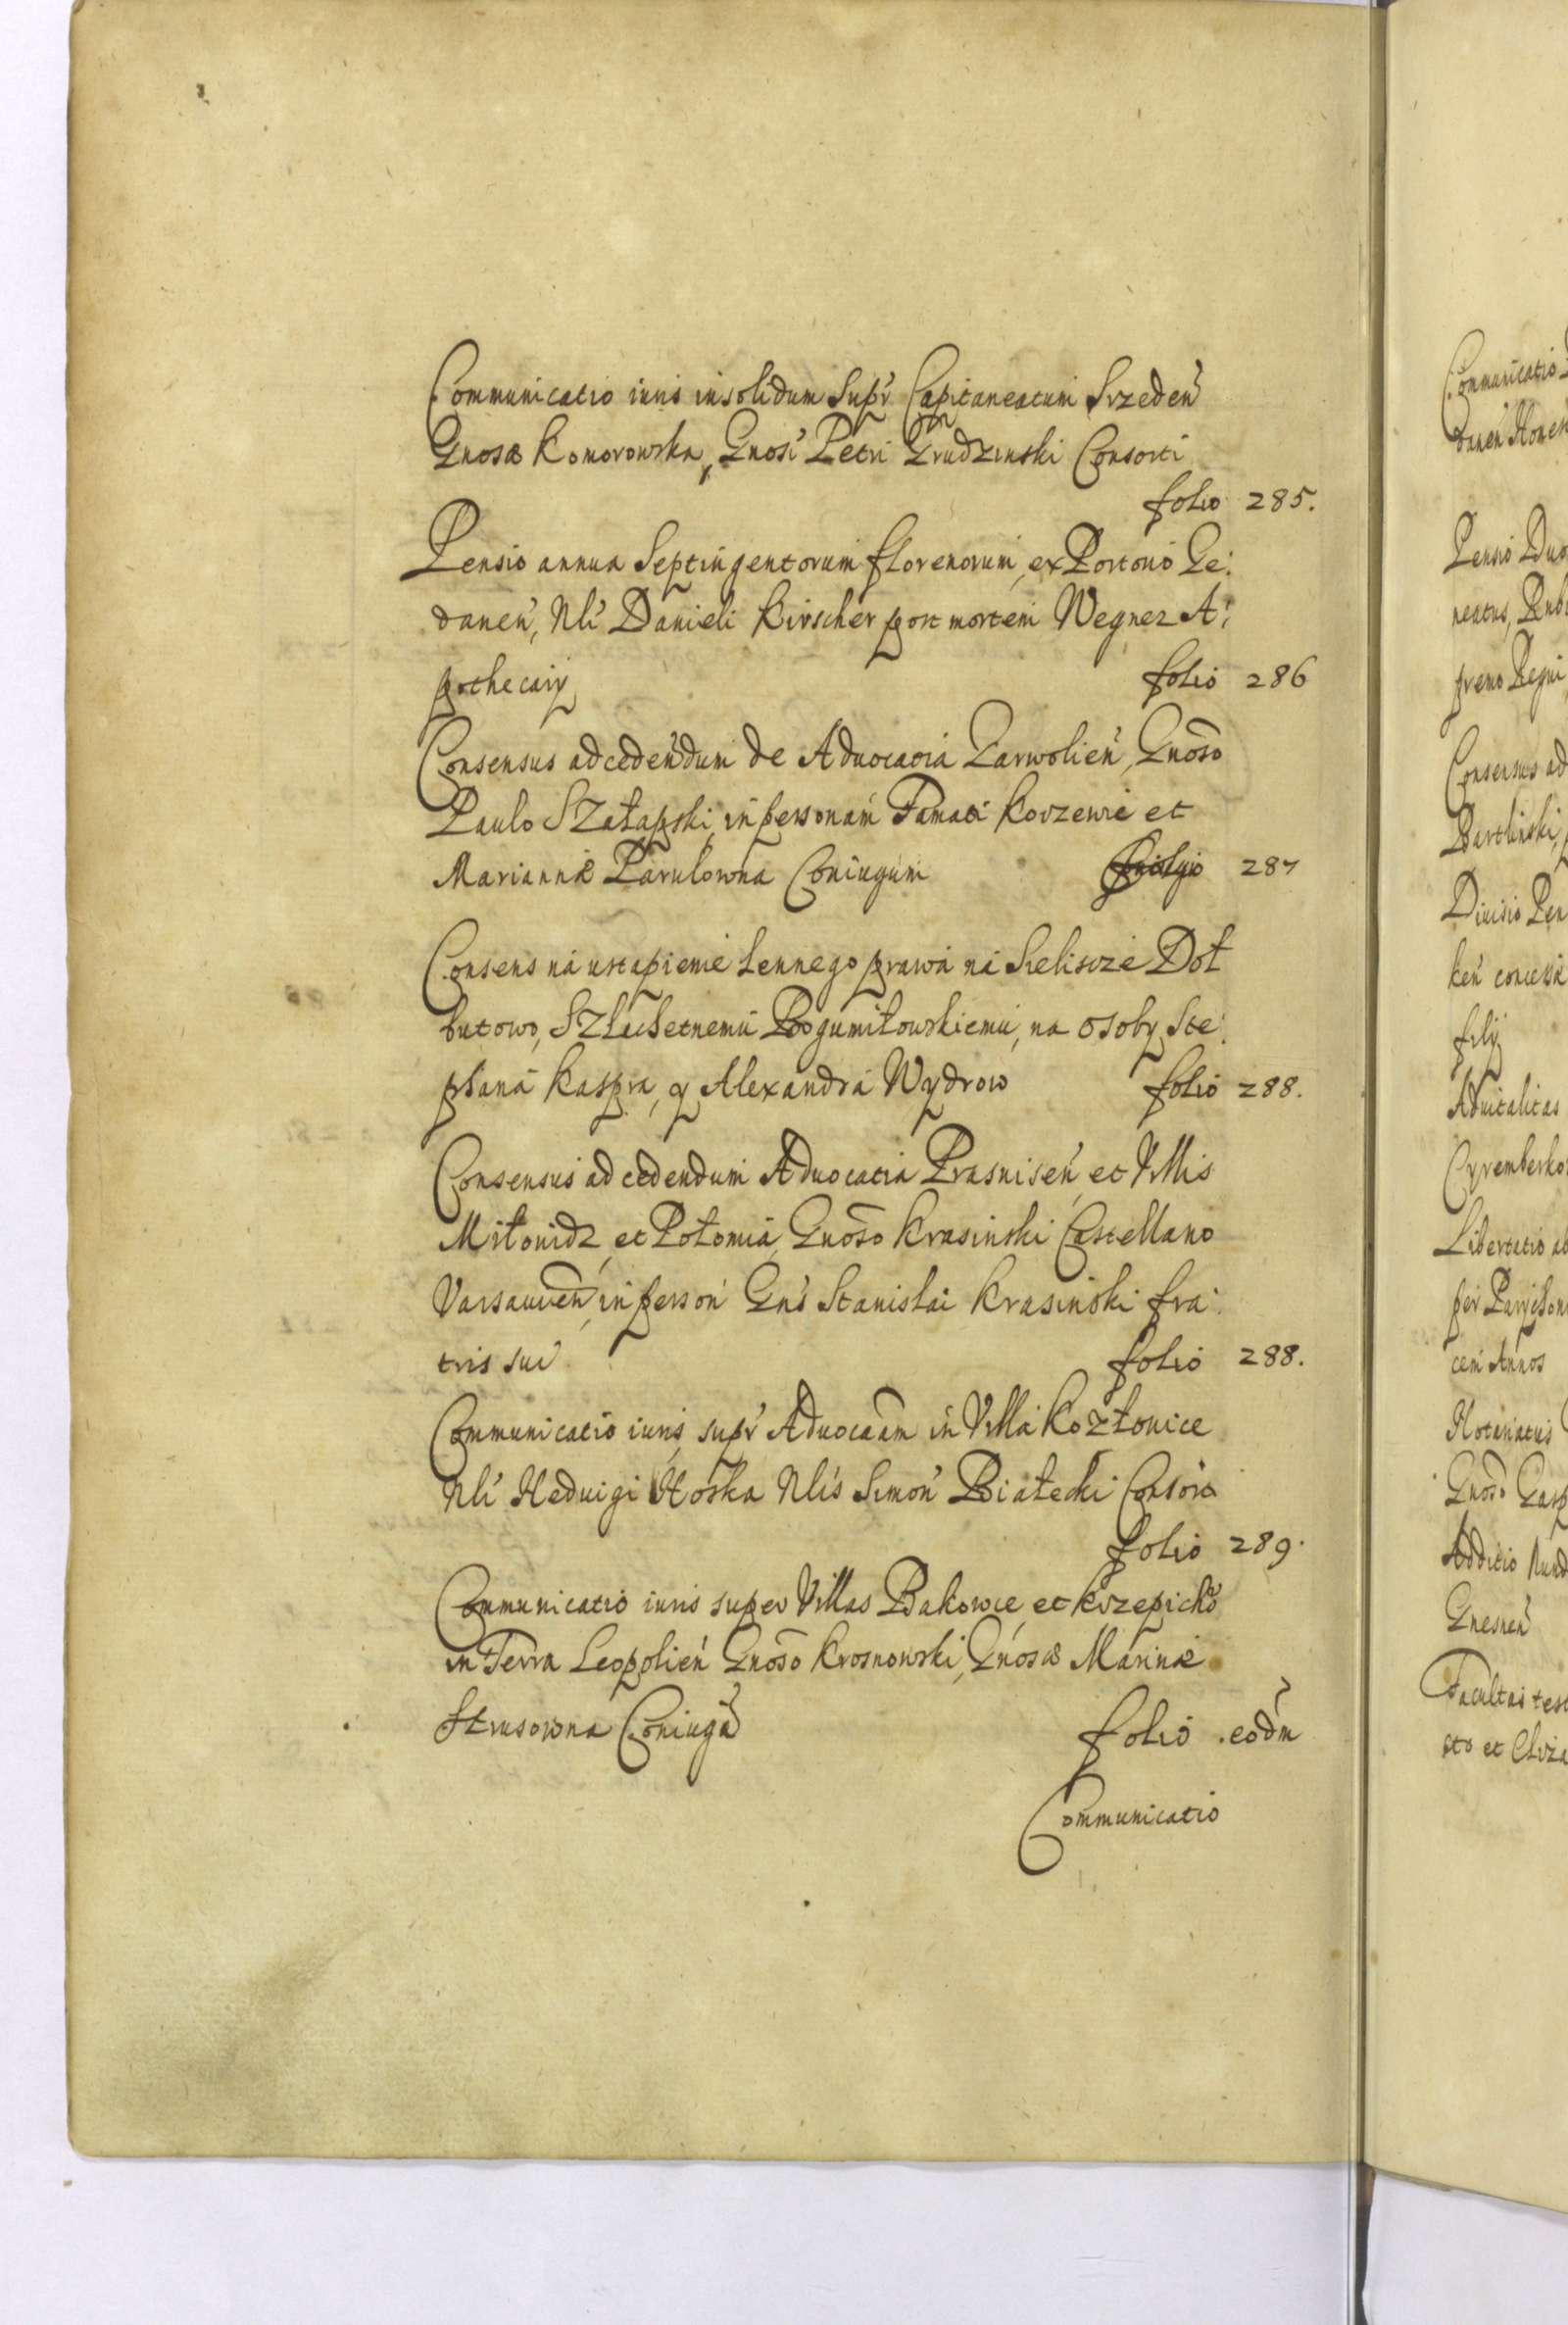 Communicatio iuris insolidum supr Capitaneatum Srzeden̄
Gnosæ Komorowska, Gnosi Petri Grudzinski Consorti
folio 285.
Pensio annua Septingentorum florenorum, ex Portorio Ge:
danen̄, Nli Danieli Kirscher post mortem Wegner A:
pothecarij folio 286
Consensus ad cedendum de Aduocatia Garwolien̄, Gnoso
Paulo Szałapski, in personam Korzenie et
Mariannæ Parulowna Coniugum 287
Consens na ustąpienie lennego prawa na Sieliscze Doł
butowo, Szlachetnemu Bogumiłowskiemu, na osoby Ste:
phana Kaspra, y Alexandra Wydrow folio 288.
Consensus ad cedendum Aduocatia Prasnisen̄, et Villis
Miłonidz, et Połomia, Gnoso Krasinski Castellano
Varsauien̄, in person̄ Gns Stanislai Krasinski fra:
tris sui folio 288.
Communicatio iuris, supr Aduocaam in Villa Kozłonice
Nli Heduigi Hoska Nlis Simon̄ Białecki Consors
folio 289.
Communicatio iuris super Villas Bakowce, et Krzepicho
in Terra Leopolien̄ Gnoso Krosnowski, Gnosæ Marinæ
Strusowna Coniuga folio eodm
Communicatio
Communicatio
danen̄
Pensio Duo
neatus,
premo Regni
Consensus ad
Diuisio Pen
ken̄
filij
Aduitalitas
Libertatio ab
cem Annos
Notariatus
Gnoso
Additio
Gnesnen̄
Facultas test